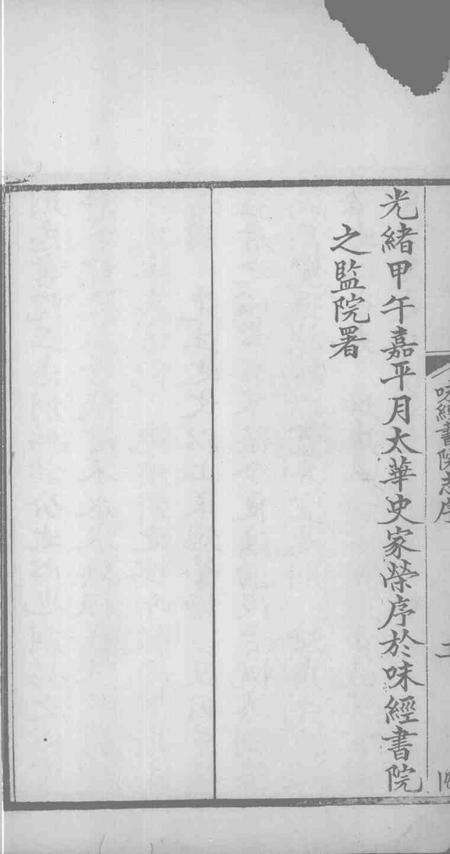 光緒甲午嘉平月太華史家榮序於味經書院
之監院署
味經書院志序
二